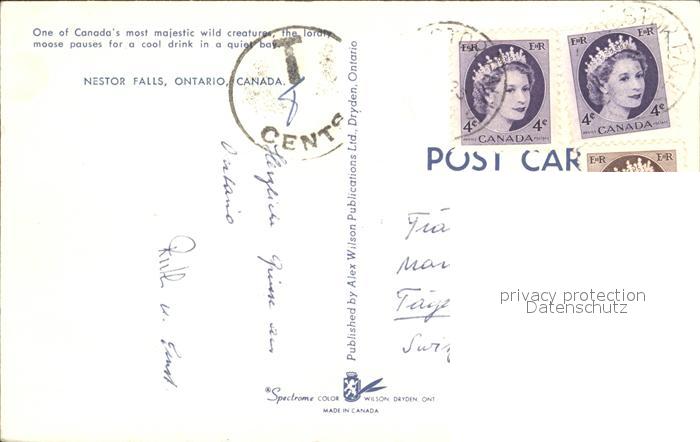 One of Canada's most majestic wild creatures, the lordly
moose pauses for a cool drink in a quiet bay.
NESTOR FALLS, ONTARIO, CANADA.
T
CENTS
Herzliche Grüsse aus
Ontario
Ruth u. Ernst.
Published by Alex Wilson Publications Ltd., Dryden, Ontario
E R
4¢ 4¢
CANADA
E R
4¢ 4¢
CANADA
E R
POST CAR
privacy protection
Datenschutz
Spectrome COLOR WILSON DRYDEN, ONT
MADE IN CANADA